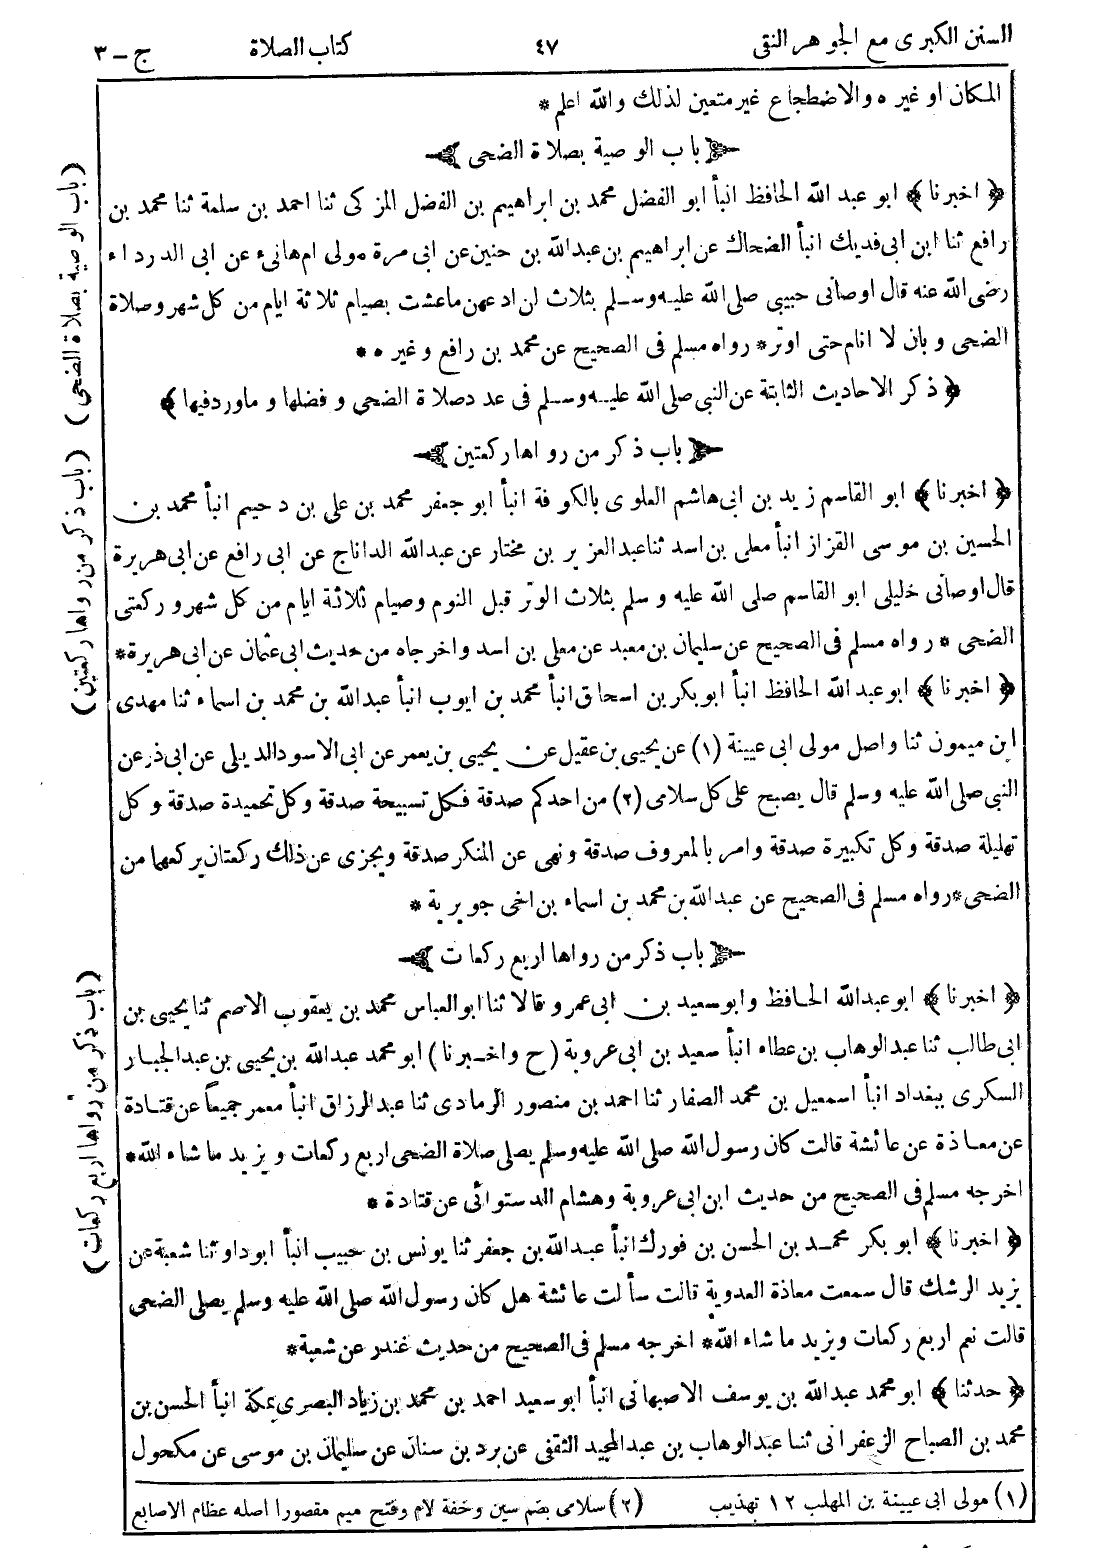 السنن الكبرى مع الجوهر النقى ٤٧ كتاب الصلاة ج - ٣
المكان او غيره والاضطجاع غير متعين لذلك والله اعلم *
باب الوصية بصلاة الضحى
﴿ اخبرنا ﴾ ابو عبد الله الحافظ انبأ ابو الفضل محمد بن ابراهيم بن الفضل المزكى ثنا احمد بن سلمة ثنا محمد بن
رافع ثنا ابن ابى فديك انبأ الضحاك عن ابراهيم بن عبد الله بن حنين عن ابى مرة مولى ام هانىء عن ابى الدرداء
رضى الله عنه قال اوصانى حبيبى صلى الله عليه وسلم بثلاث لن ادعهن ماعشت بصيام ثلاثة ايام من كل شهر وصلاة
الضحى و بان لا انام حتى اوتر * رواه مسلم فى الصحيح عن محمد بن رافع وغيره *
﴿ ذكر الاحاديث الثابتة عن النبى صلى الله عليه وسلم فى عدد صلاة الضحى و فضلها و ماورد فيها ﴾
باب ذكر من رواها ركعتين
﴿ اخبرنا ﴾ ابو القاسم زيد بن ابى هاشم العلوى بالكوفة انبأ ابو جعفر محمد بن على بن دحيم انبأ محمد بن
الحسين بن موسى القزاز انبأ معلى بن اسد ثنا عبد العزيز بن مختار عن عبد الله الداناج عن ابى رافع عن ابى هريرة
قال اوصانى خليلى ابو القاسم صلى الله عليه و سلم بثلاث الوتر قبل النوم وصيام ثلاثة ايام من كل شهر و ركعتى
الضحى * رواه مسلم فى الصحيح عن سليمان بن معبد عن معلى بن اسد واخرجاه من حديث ابى عثمان عن ابى هريرة *
﴿ اخبرنا ﴾ ابو عبد الله الحافظ انبأ ابو بكر بن اسحاق انبأ محمد بن ايوب انبأ عبد الله بن محمد بن اسماء ثنا مهدى
ابن ميمون ثنا واصل مولى ابى عيينة (١) عن يحيى بن عقيل عن يحيى بن يعمر عن ابى الاسود الديلى عن ابى ذر عن
النبى صلى الله عليه وسلم قال يصبح على كل سلامى (٢) من احدكم صدقة فكل تسبيحة صدقة وكل تحميدة صدقة وكل
تهليلة صدقة وكل تكبيرة صدقة وامر بالمعروف صدقة ونهى عن المنكر صدقة ويجزى عن ذلك ركعتان يركعهما من
الضحى * رواه مسلم فى الصحيح عن عبد الله بن محمد بن اسماء بن اخى جويرية *
باب ذكر من رواها اربع ركعات
﴿ اخبرنا ﴾ ابو عبد الله الحافظ وابو سعيد بن ابى عمرو قالا ثنا ابو العباس محمد بن يعقوب الاصم ثنا يحيى بن
ابى طالب ثنا عبد الوهاب بن عطاء انبأ سعيد بن ابى عروبة ( ح واخبرنا ) ابو محمد عبد الله بن يحيى بن عبد الجبار
السكرى ببغداد انبأ اسمعيل بن محمد الصفار ثنا احمد بن منصور الرمادى ثنا عبد الرزاق انبأ معمر جميعاً عن قتادة
عن معاذة عن عائشة قالت كان رسول الله صلى الله عليه وسلم يصلى صلاة الضحى اربع ركعات ويزيد ما شاء الله *
اخرجه مسلم فى الصحيح من حديث ابن ابى عروبة وهشام الدستوائى عن قتادة *
﴿ اخبرنا ﴾ ابو بكر محمد بن الحسن بن فورك انبأ عبد الله بن جعفر ثنا يونس بن حبيب انبأ ابوداو ثنا شعبة عن
يزيد الرشك قال سمعت معاذة العدوية قالت سألت عائشة هل كان رسول الله صلى الله عليه وسلم يصلى الضحى
قالت نعم اربع ركعات ويزيد ما شاء الله * اخرجه مسلم فى الصحيح من حديث غندر عن شعبة *
﴿ حدثنا ﴾ ابو محمد عبد الله بن يوسف الاصبهانى انبأ ابو سعيد احمد بن محمد بن زياد البصرى بمكة انبأ الحسن بن
محمد بن الصباح الزعفرانى ثنا عبد الوهاب بن عبد المجيد الثقفى عن برد بن سنان عن سليمان بن موسى عن مكحول
(١) مولى ابى عيينة بن المهلب ١٢ تهذيب (٢) سلامى بضم سين وخفة لام وفتح ميم مقصورا اصله عظام الاصابع
( باب الوصية بصلاة الضحى )
( باب ذكر من رواها ركعتين )
( باب ذكر من رواها اربع ركعات )